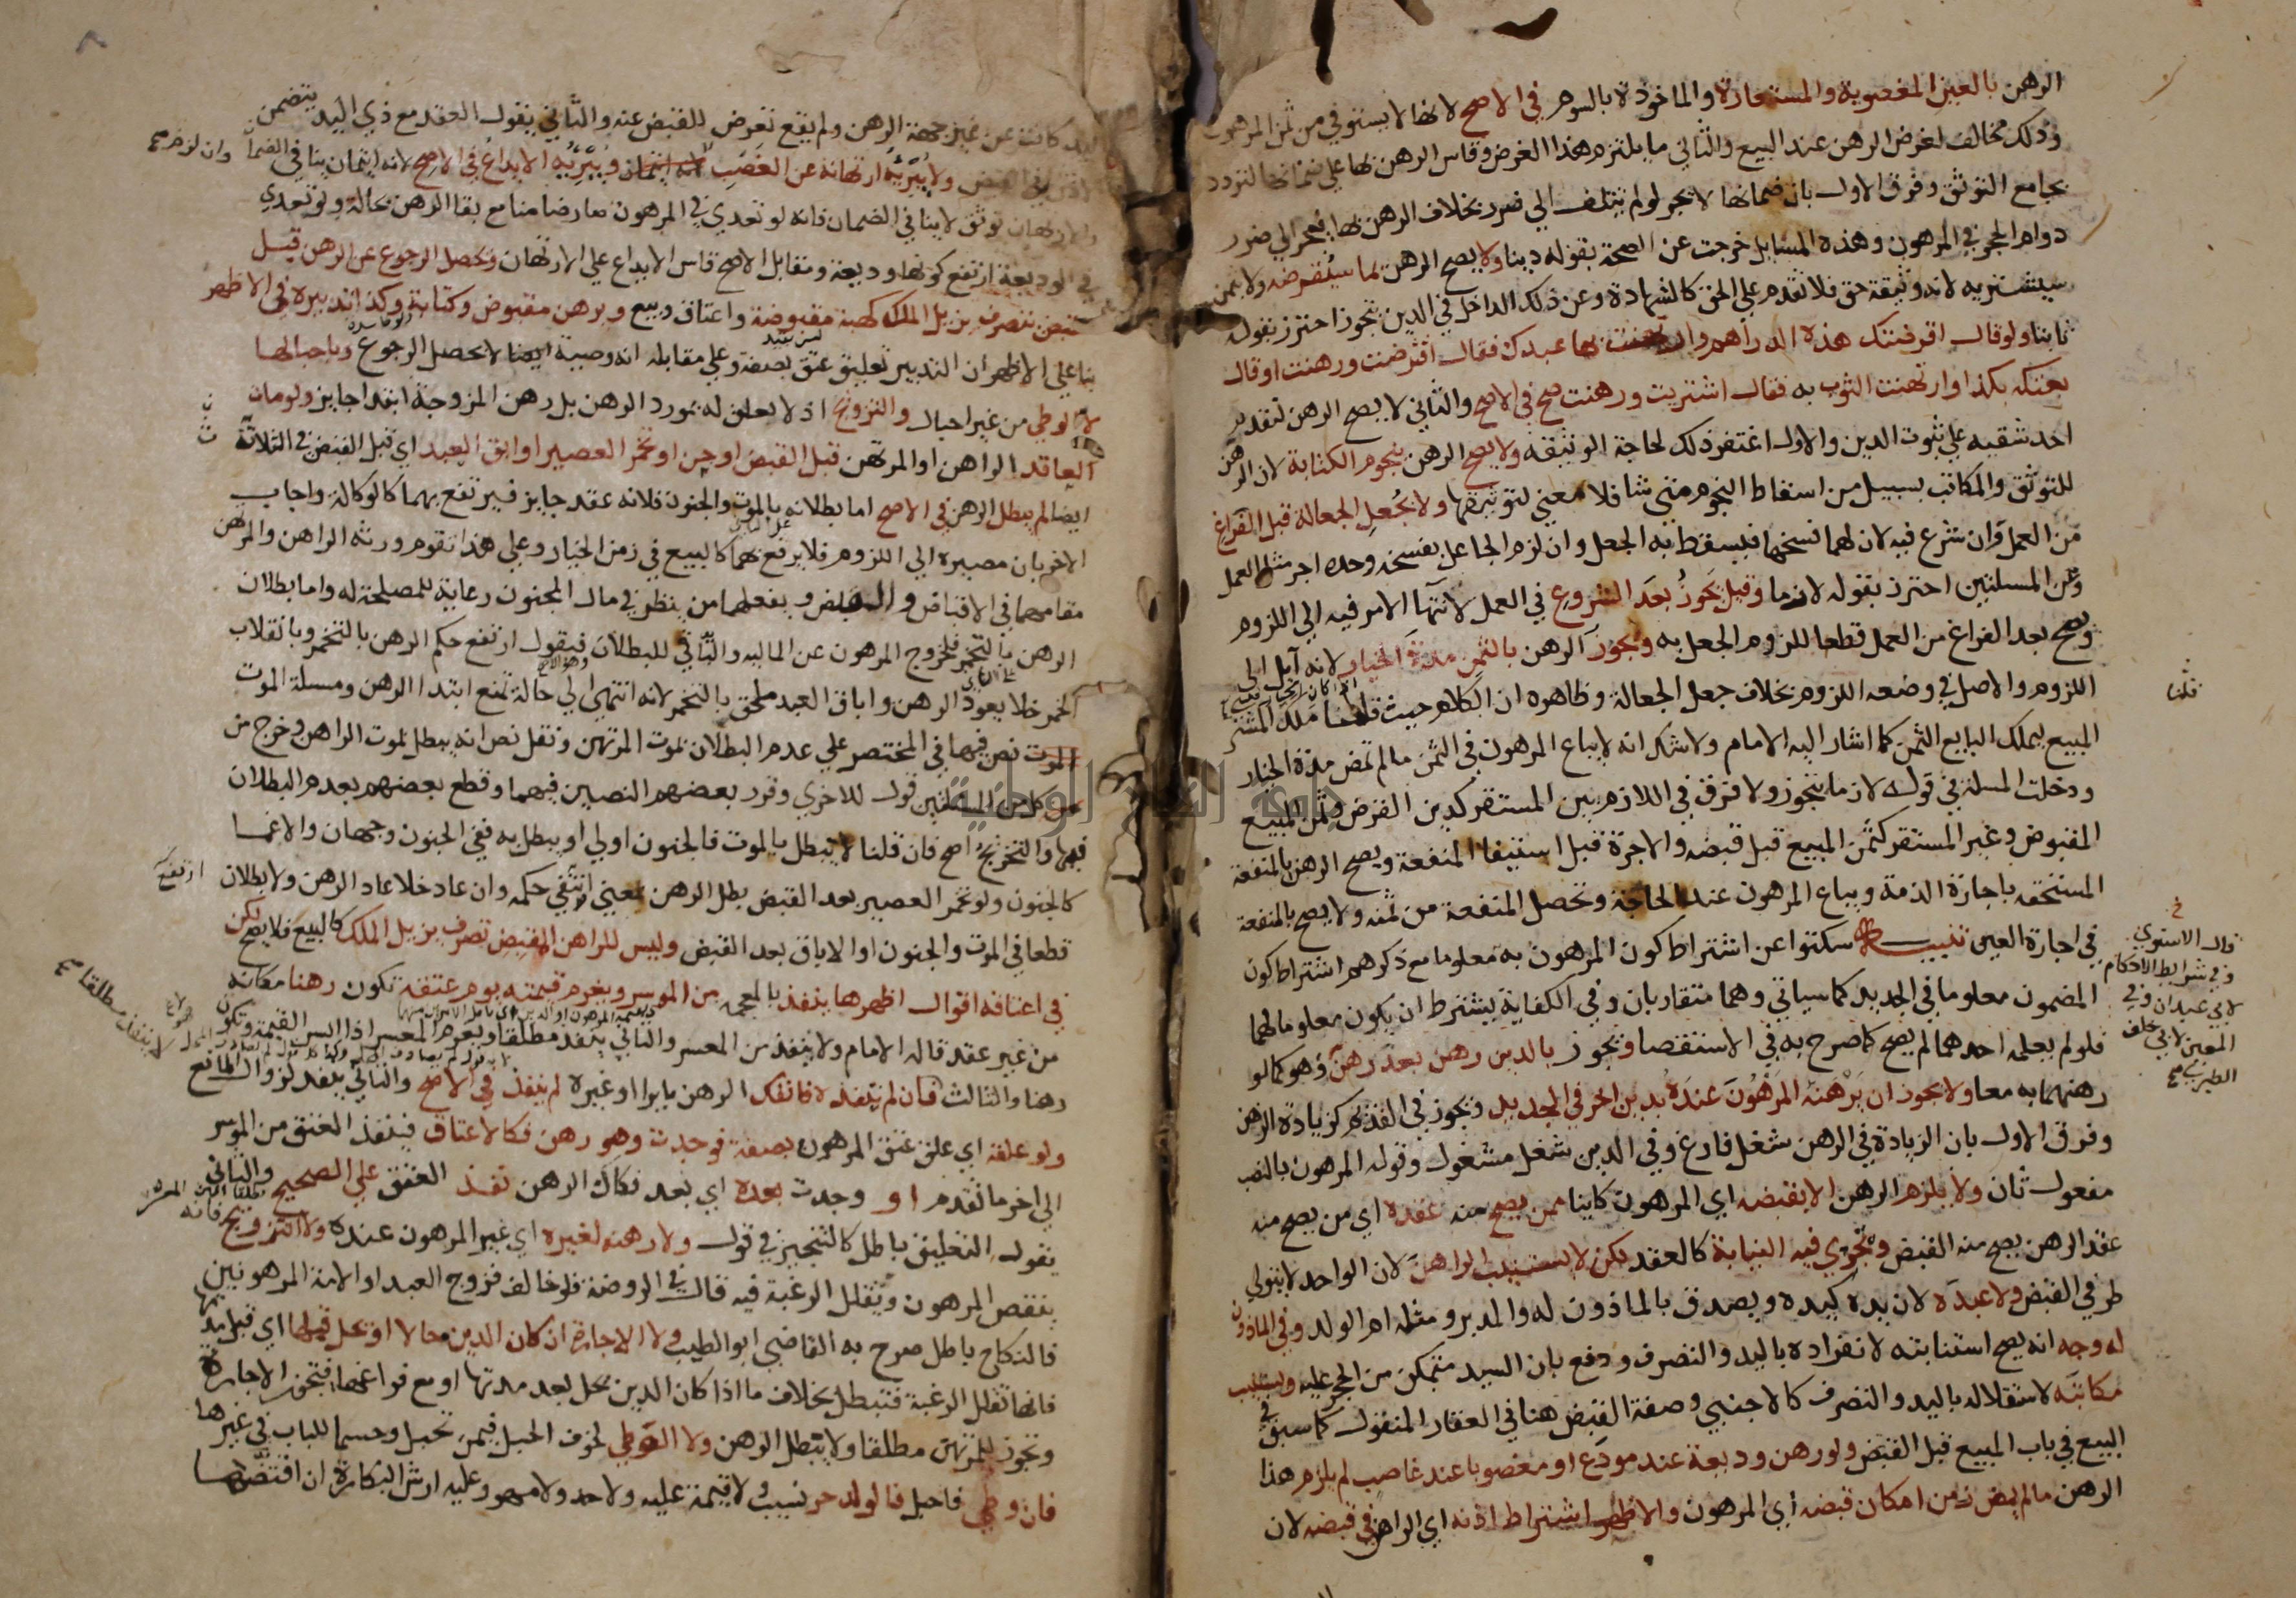 الرهن بالعين المغصوبة والمستعارة والماخوذة بالسوم في الاصح لانها لا يستوفي من ثمن المرهون
وذلك مخالف لغرض الرهن عند البيع والثاني ما يلتزم هذا الغرض وقاس الرهن بها على ضمانها لتردد
بجامع التوثق وفرق الاول بان ضمانها لا يجر لو لم تتلف الي ضرر بخلاف الرهن بها فيجر الي ضرر
دوام الحجر في المرهون وهذه المسايل خرجت عن الصحة بقوله دينا ولا يصح الرهن بما سيقرضه ولا بثمن
سيشتريه لانه وثيقة حق فلا تقدم علي الحق كالشهادة وعن ذلك الداخل في الدين تجوزا احترز بقوله
ثابتا ولو قال اقرضتك هذه الدراهم وارتهنت بها عبدك فقال اقترضت ورهنت او قال
بعتكه بكذا وارتهنت الثوب به فقال اشتريت ورهنت صح في الاصح والثاني لا يصح الرهن لتقدم
احد شقيه علي ثبوت الدين والاول اغتفر ذلك لحاجة الوثيقه ولا يصح الرهن بنجوم الكتابة لان الرهن
للتوثق والمكاتب بسبيل من اسقاط النجوم متي شا فلا معني لتوثيقها ولا بجعل الجعالة قبل الفراغ
من العمل وان شرع فيه لان لهما فسخها فيسقط به الجعل وان لزم الجاعل بفسخه وحده اجر مثل العمل
وعن المسلتين احترز بقوله لازما وقيل يجوز بعد الشروع في العمل لانتها الامر فيه الي اللزوم
ويصح بعد الفراغ من العمل قطعا للزوم الجعل به ويجوز الرهن بالثمن مدة الخيار لانه آيل الي
اللزوم والاصل في وضعه اللزوم بخلاف جعل الجعالة وظاهره ان الكلام حيث قلنا ملك المشتري
المبيع ليملك البايع الثمن كما اشار اليه الامام ولا شك انه لا يباع المرهون في الثمن ما لم تمض مدة الخيار
ودخلت المسلة في قوله لازما بتجوز ولا فرق في اللازم بين المستقر كدين القرض وثمن المبيع
المقبوض وغير المستقر كثمن المبيع قبل قبضه والاجرة قبل استيفا المنفعة ويصح الرهن بالمنفعة
المستحقه باجارة الذمة ويباع المرهون عند الحاجة وتحصل المنفعة من ثمنه ولا يصح بالمنفعة
في اجارة العين تنبيه سكتوا عن اشتراط كون المرهون به معلوما مع ذكرهم اشتراط كون
المضمون معلوما في الجديد كما سياتي وهما متقاربان وفي الكفاية يشترط ان يكون معلوما لهما
فلو لم يعلمه احدهما لم يصح كما صرح به في الاستقصا ويجوز بالدين رهن بعد رهن وهو كما لو
رهنهما به معا ولا يجوز ان يرهنه المرهون عنده بدين اخر في الجديد ويجوز في القديم كزيادة الرهن
وفرق الاول بان الزيادة في الرهن شغل فارغ وفي الدين شغل مشغول وقوله المرهون بالنصب
مفعول ثان ولا يلزم الرهن الا بقبضه اي المرهون كاينا ممن يصح منه عقده اي من يصح منه
عقد الرهن يصح منه القبض وتجري فيه النيابة كالعقد لكن لا يستنيب الراهن لان الواحد لا يتولي
طرفي القبض ولا عبده لان يده كيده ويصدق بالماذون له والمدبر ومثله ام الولد وفي الماذون
له وجه انه يصح استنابته لانفراده باليد والتصرف ودفع بان السيد متمكن من الحجر عليه ويستنيب
مكاتبه لاستقلاله باليد والتصرف كالاجنبي وصفة القبض هنا في العقار المنقول كما سبق في
البيع في باب المبيع قبل القبض ولو رهن وديعة عند مودع او مغصوبا عند غاصب لم يلزم هذا
الرهن ما لم يمض زمن امكان قبضه اي المرهون والاظهر اشتراط اذنه اي الراهن في قبضه لان
قلنا
قال الاسنوي
وفي شرايط الاحكام
لابي عبدان وفي
المعين لابي خلف
الطبري صح
كانت عن غير جهة الرهن ولم يقع تعرض للقبض عنه والثاني يقول العقد مع ذي اليد يتضمن
الاذن في القبض ولا يبريه ارتهانه عن الغصب ويبريه الايداع في الاصح لانه ايتمان ينافي الضمان
والارتهان توثق لا ينافي الضمان فانه لو تعدي في المرهون صار ضامنا مع بقا الرهن بحاله ولو تعدي
في الوديعة ارتفع كونها وديعة ومقابل الاصح قاس الايداع علي الارتهان ويحصل الرجوع عن الرهن قبل
القبض بتصرف يزيل الملك كهبة مقبوضة واعتاق وبيع وبرهن مقبوض وكتابة وكذا تدبيره في الاظهر
بنا علي الاظهر ان التدبير تعليق عتق بصفة وعلي مقابله انه وصية ايضا لا يحصل الرجوع وباحبالها
لا الوطي من غير احبال والتزويج اذ لا تعلق له بمورد الرهن بل رهن المزوجة ابتدا جايز ولو مات
العاقد الراهن او المرتهن قبل القبض او جن او تخمر العصير او ابق العبد اي قبل القبض في الثلاثة
ايضا لم يبطل الرهن في الاصح اما بطلانه بالموت والجنون فلانه عقد جايز فيرتفع بهما كالوكالة واجاب
الاخر بان مصيره الي اللزوم فلا يرتفع بهما كالبيع في زمن الخيار وعلي هذا تقوم ورثه الراهن والمرتهن
مقامهما في الاقباض والقبض ويفعلهما من ينظر في مال المجنون رعاية للمصلحة له واما بطلان
الرهن بالتخمر فلخروج المرهون عن المالية والثاني للبطلان فيقول ارتفع حكم الرهن بالتخمر وبانقلاب
الخمر خلا يعود الرهن واباق العبد ملحق بالتخمر لانه انتهي الي حالة تمنع ابتدا الرهن ومسلة الموت
نص فيها في المختصر علي عدم البطلان بموت المرتهن ونقل نص انه يبطل بموت الراهن وخرج من
كل من المسلتين قول للاخري وقرر بعضهم النصين فيهما وقطع بعضهم بعدم البطلان
فيهما والتخريج اصح فان قلنا لا يبطل بالموت فالجنون اولي او يبطل به ففي الجنون وجهان والاغما
كالجنون ولو تخمر العصير بعد القبض بطل الرهن بمعني انتفي حكمه وان عاد خلا عاد الرهن ولا بطلان
قطعا في الموت والجنون او الاباق بعد القبض وليس للراهن المقبض تصرف يزيل الملك كالبيع فلا يصح لكن
في اعتاقه اقوال اظهرها ينفذ من الموسر ويغرم قيمته يوم عتقه تكون رهنا مكانه
من غير عقد قاله الامام ولا ينفذ من المعسر والثاني ينفذ مطلقا ويغرم المعسر اذا ايسر القيمة وتكون
رهنا والثالث فان لم ينفذ فانفك الرهن بابرا او غيره لم ينفذ في الاصح والثاني ينفذ لزوال المانع
ولو علقه اي علق عتق المرهون بصفة فوجدت وهو رهن فكالاعتاق فينفذ العتق من الموسر
الي اخر ما تقدم او وجدت بعده اي بعد فكاك الرهن نفذ العتق علي الصحيح والثاني
يقول التعليق باطل كالتنجيز في قول ولا رهنه لغيره اي غير المرهون عنده ولا التزويج فانه
ينقص المرهون ويقلل الرغبة فيه قال في الروضة فلو خالف فزوج العبد او الامة المرهونين
فالنكاح باطل صرح به القاضي ابو الطيب ولا الاجارة ان كان الدين حالا او يحل قبلها اي قبل مدتها
فانها تقلل الرغبة فتبطل بخلاف ما اذا كان الدين يحل بعد مدتها او مع فراغها فتجوز الاجارة
وتجوز للمرتهن مطلقا ولا يبطل الرهن ولا الوطي لخوف الحبل فيمن تحبل وحسما للباب في غيرها
فان وطي فاحبل فالولد حر نسيب ولا قيمة عليه ولا حد ولا مهر وعليه ارش البكارة ان افتضها
وان لزم صح
ارتفع
لا ينفذ مطلقا صح